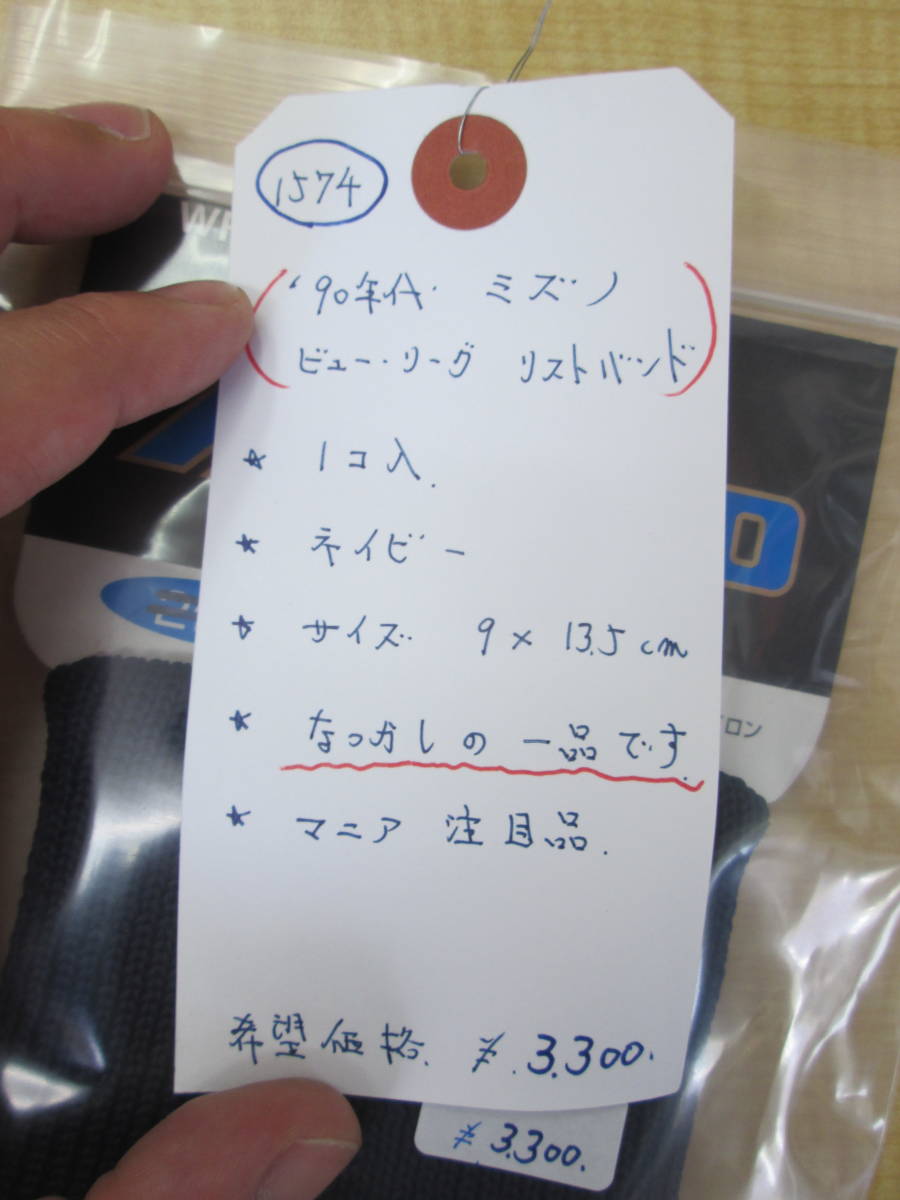 1574
'90年代 ミズノ
ビュー・リーグ リストバンド
★ 1コ入.
★ ネイビー
★ サイズ 9×13.5cm
★ なつかしの一品です.
★ マニア 注目品.
希望価格. ¥.3.300.
¥3.300.
ロン